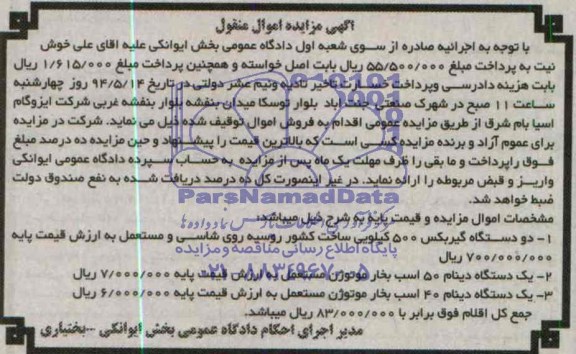 آگهی مزایده اموال منقول
با توجه به اجرائیه صادره از سوی شعبه اول دادگاه عمومی بخش ایوانکی علیه اقای علی خوش
نیت به پرداخت مبلغ ۵۵/۵۰۰/۰۰۰ ریال بابت اصل خواسته و همچنین پرداخت مبلغ ۱/۶۱۵/۰۰۰ ریال
بابت هزینه دادرسی وپرداخت خسارت تاخیر تادیه ونیم عشر دولتی در تاریخ ۹۴/۵/۱۴ روز چهارشنبه
ساعت ۱۱ صبح در شهرک صنعتی جنت آباد بلوار توسکا میدان بنفشه بلوار بنفشه غربی شرکت ایزوگام
اسیا بام شرق از طریق مزایده عمومی اقدام به فروش اموال توقیف شده ذیل می نماید. شرکت در مزایده
برای عموم آزاد و برنده مزایده کسی است که بالاترین قیمت را پیشنهاد و حین مزایده ده درصد مبلغ
فوق راپرداخت و ما بقی را ظرف مهلت یک ماه پس از مزایده به حساب سپرده دادگاه عمومی ایوانکی
واریز و قبض مربوطه را ارائه نماید. در غیر اینصورت کل ده درصد دریافت شده به نفع صندوق دولت
ضبط خواهد شد.
ParsNamadData
مشخصات اموال مزایده و قیمت پایه به شرح ذیل میباشد:
۱- دو دستگاه گیربکس ۵۰۰ کیلویی ساخت کشور روسیه روی شاسی و مستعمل به ارزش قیمت پایه
پایگاه اطلاع رسانی مناقصه ومزایده
۷۰۰/۰۰۰/۰۰۰ ریال
۰۲۱-۸۸۳۴۹۶۷۰-۵
۲- یک دستگاه دینام ۵۰ اسب بخار موتوژن مستعمل به ارزش قیمت پایه ۷/۰۰۰/۰۰۰ ریال
۳- یک دستگاه دینام ۴۰ اسب بخار موتوژن مستعمل به ارزش قیمت پایه ۶/۰۰۰/۰۰۰ ریال
جمع کل اقلام فوق برابر با ۸۳/۰۰۰/۰۰۰ ریال میباشد.
مدیر اجرای احکام دادگاه عمومی بخش ایوانکی --بختیاری